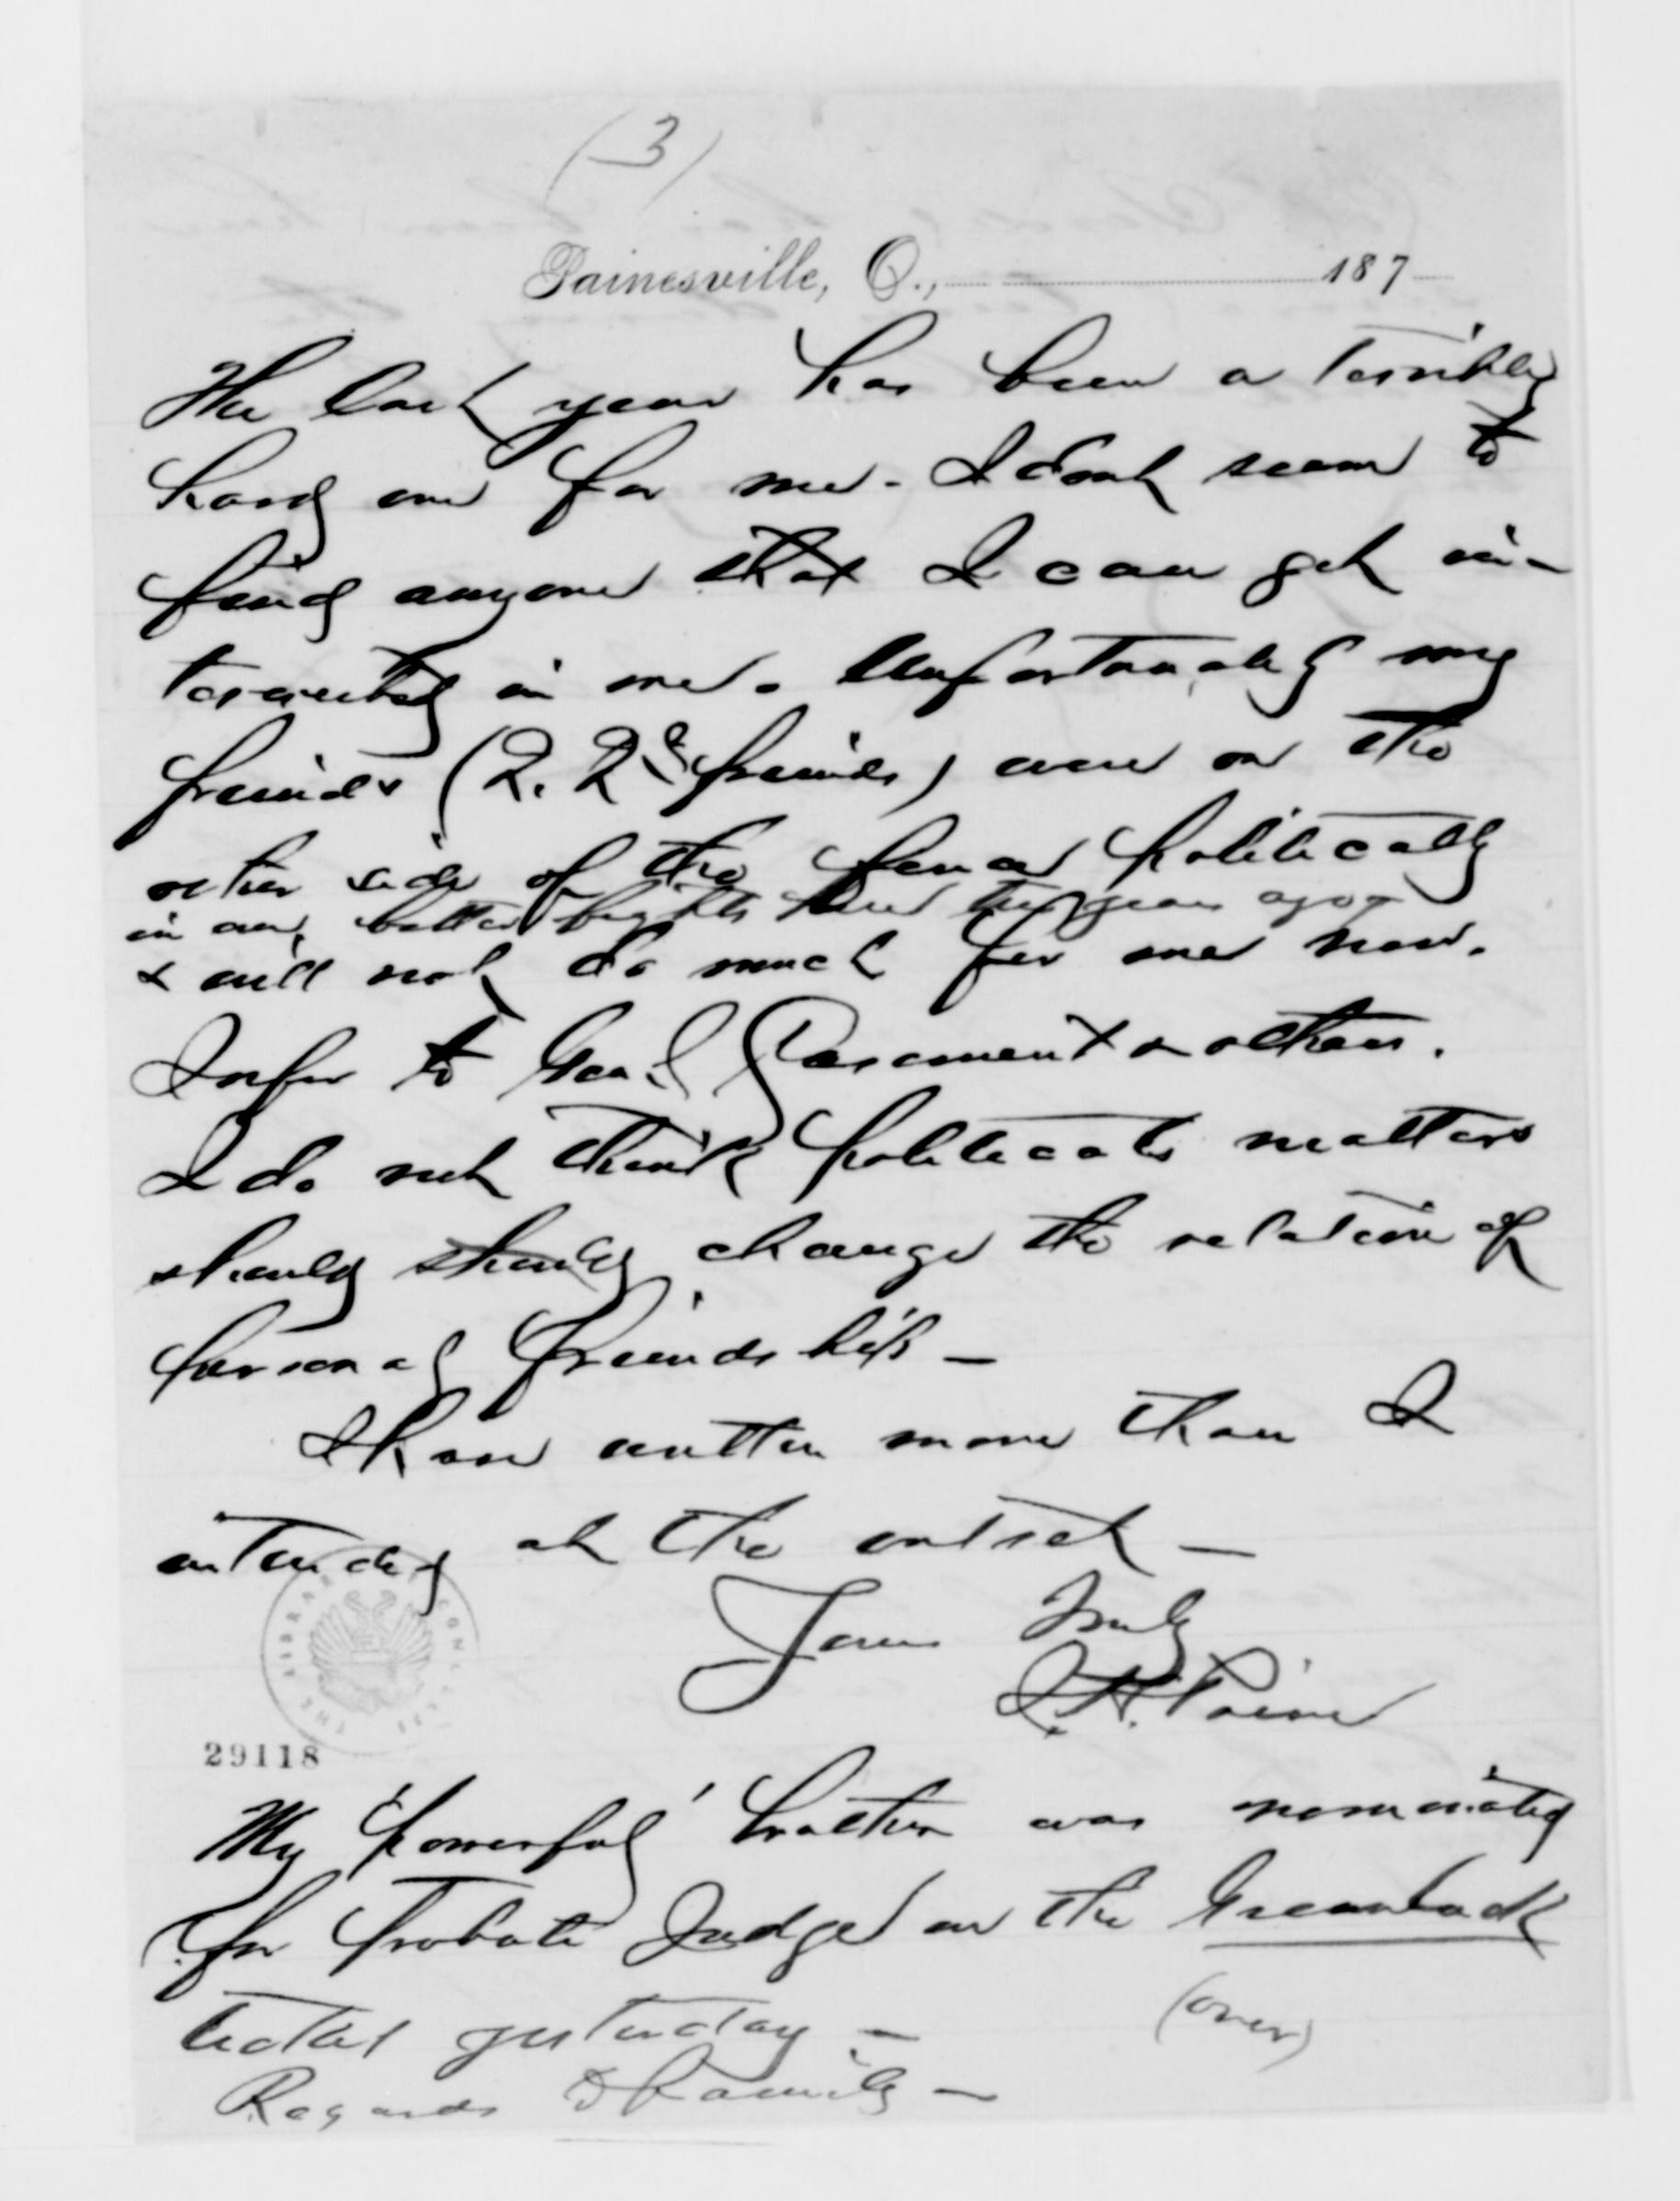 (3)
Painesville, O., 187
The last year has been a terribly
hard one for me. I dont seem to
find anyone that I can get in-
terested in me. Unfortunately my
freinds (R. R.d freinds) were on the
other side of the fence politically
in our bitter fights here two years ago
& will not do much for me now.
I refer to Gen.l Casement & others.
I do not think politicals matters
should should change the relation of
personal freindship —
I have written more than I
intended at the outset —
Yours Truly
Paine
THE LIBRARY CONGRESS
29118
My 'powerful' brother was nominated
for Probate Judge on the Greenback
ticket yesterday —
(over)
Regards to family —